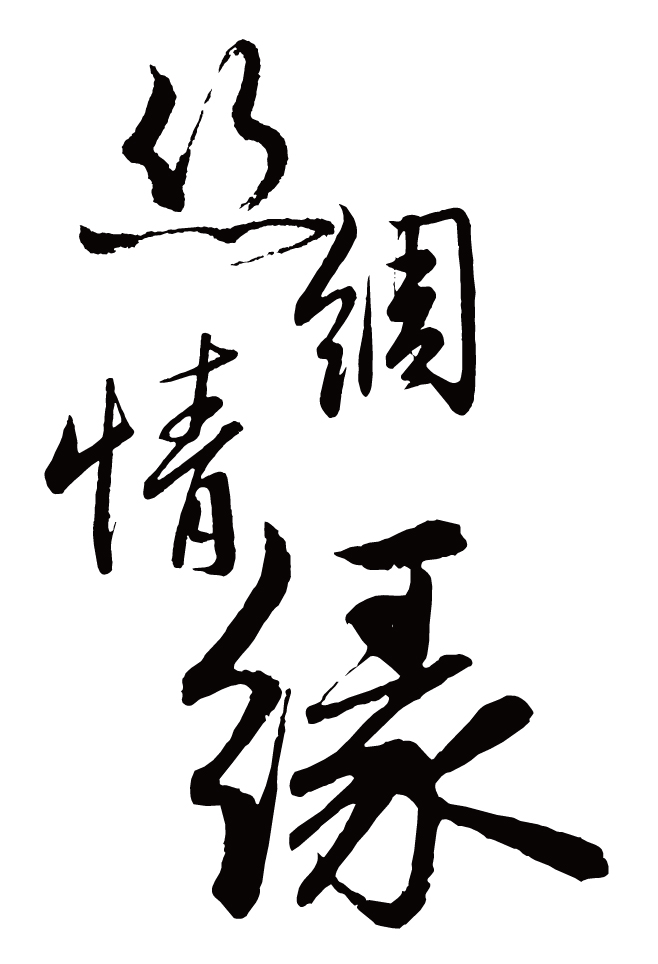 丝绸
情缘